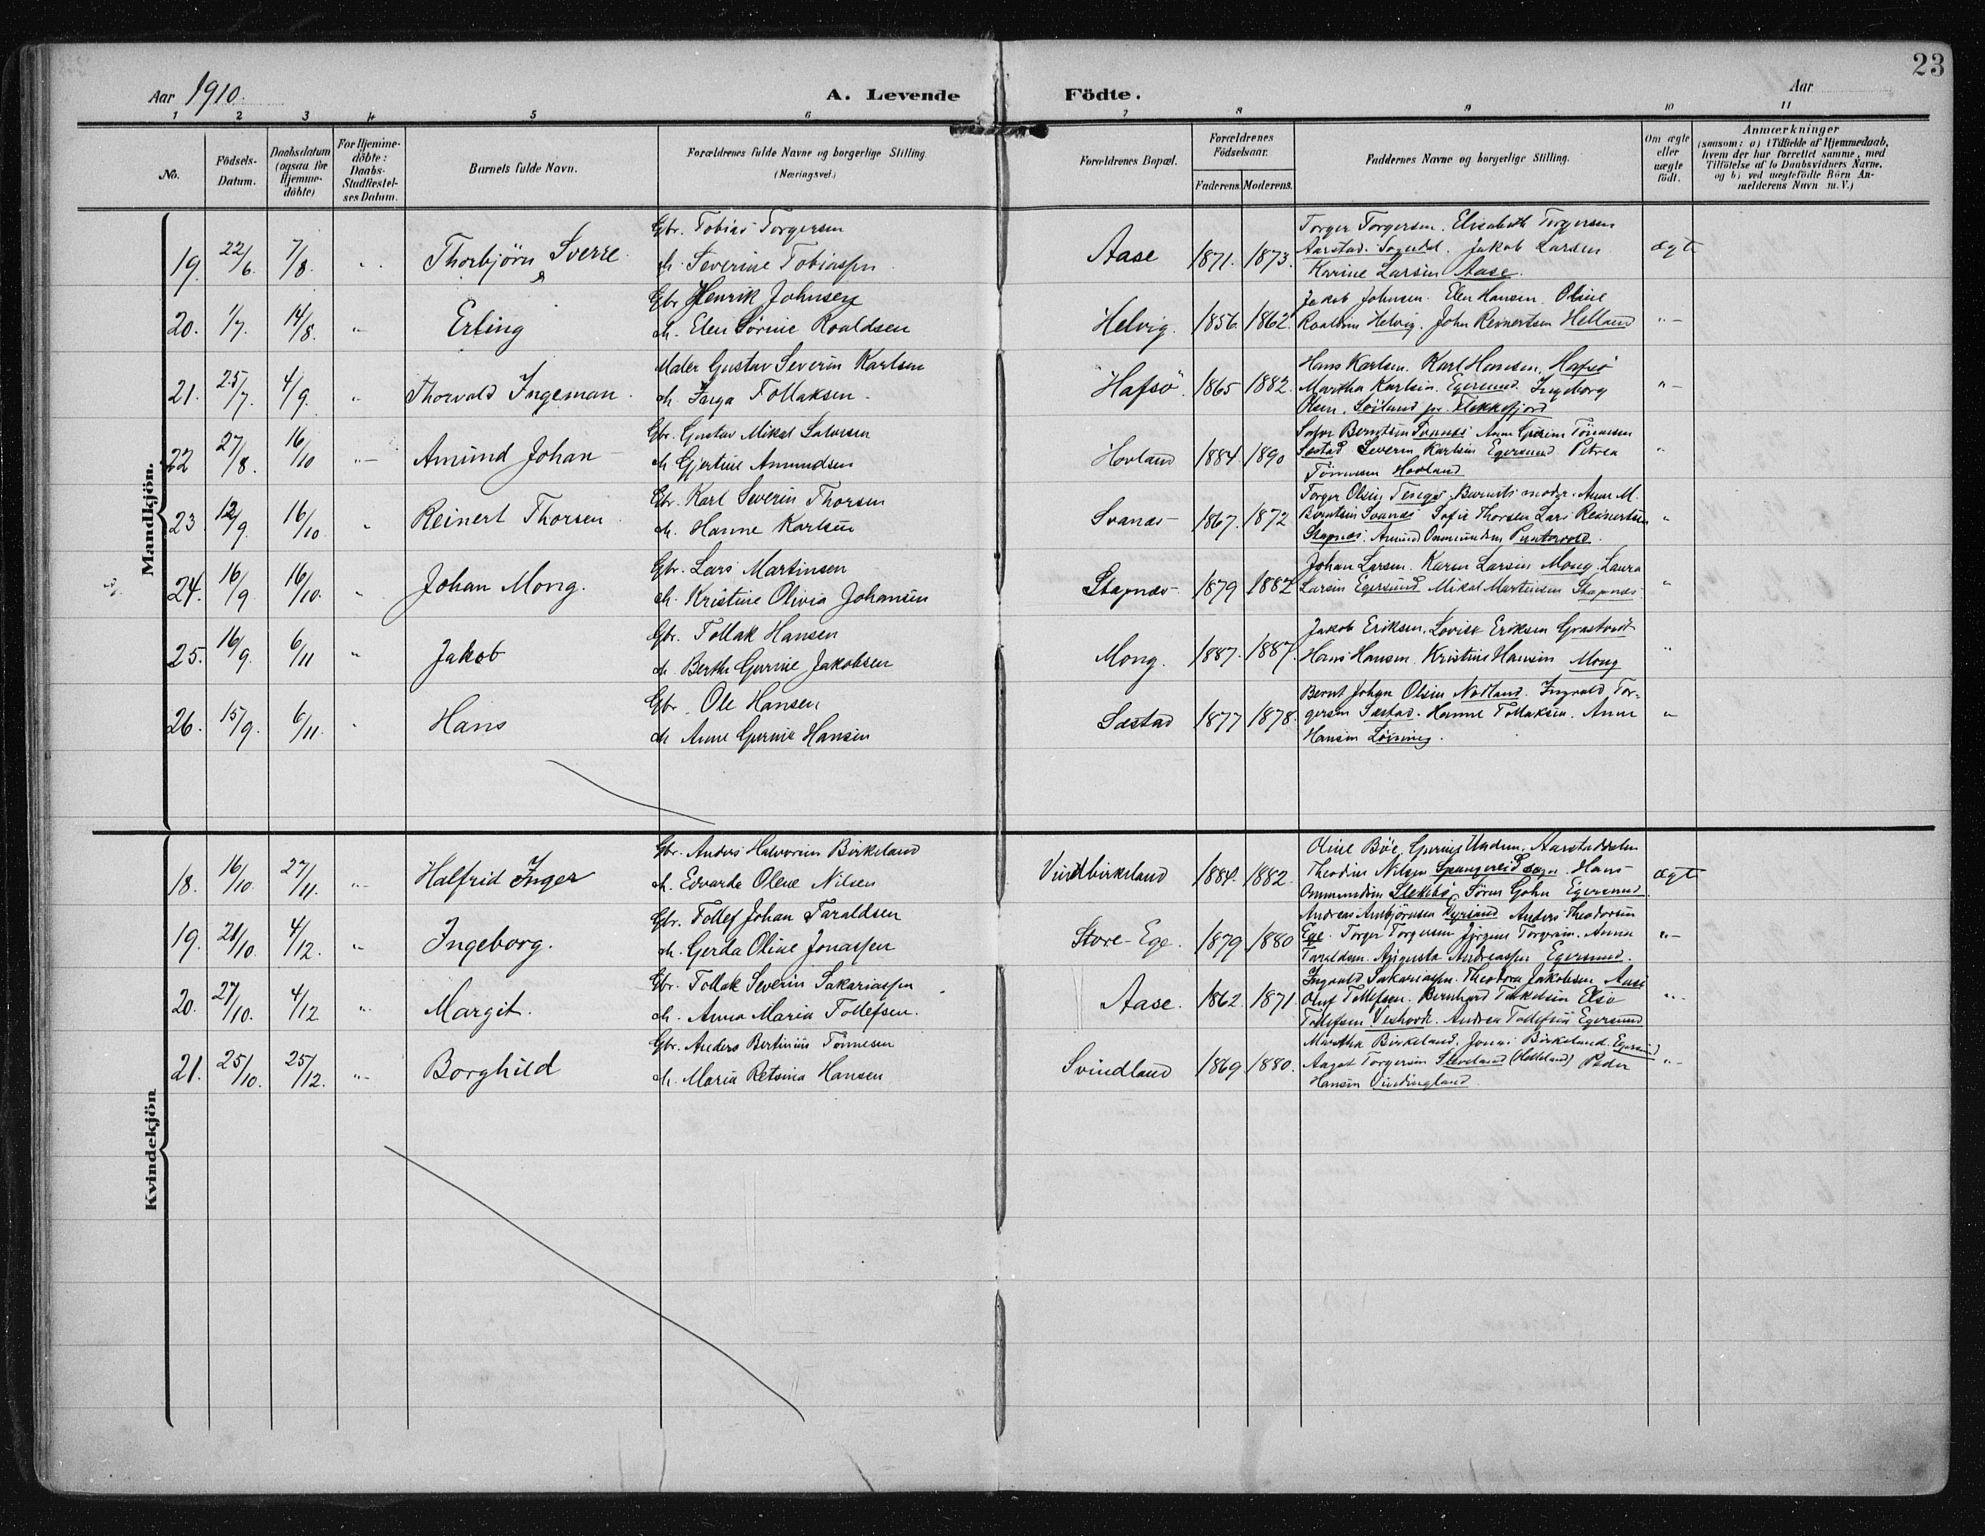 23
Aar 1910. A. Levende Födte. Aar
1 2 3 4 5 6 7 8 9 10 11
No.
Födsels-Datum.
Daabsdatum (ogsaa for Hjemme-döbte)
For Hjemme-döbte: Daabs-Stadfæstel-ses Datum.
Barnets fulde Navn.
Forældrenes fulde Navne og borgerlige Stilling (Næringsvei.)
Forældrenes Bopæl.
Forældrenes Födselsaar.
Faderens. Moderens.
Faddernes Navne og borgerlige Stilling.
Om ægte eller uægte födt.
Anmærkninger
(saasom: a) i Tilfælde af Hjemmedaab,
hvem der har forrettet samme, med
Tilföielse af to Daabsvidners Navne.
og b) ved uægtefödte Börn An-
melderens Navn m. V.)
Mandkjön.
19. 22/6 7/8 Thorbjörn Sverre Gbr. Tobias Torgersen
h. Severine Tobiassen Aase 1871. 1873. ægt
Torger Torgersen. Elisabeth Torgersen
Aarstad. Jakob Larsen
Karine Larsen Aase.
20. 1/7. 14/8 " Erling Gbr Henrik Johnsen
h. Elen Sörine Roaldsen Helvig. 1856. 1862. "
Jakob Johnsen. Elen Hansen. Oline
Roaldsen Helvig. John Reinertsen Helland
21. 25/7. 4/9. " Thorvald Ingeman. Maler Gustav Severin Karlsen
h. Inga Tollaksen. Hafsö. 1865 1882. "
Hans Karlsen. Karl Hansen, Hafsö
Martha Karlsen. Egersund. Ingeborg
Olsen. pr. Flekkefjord
22 27/8. 16/10 " Amund Johan Gbr. Gustav Mikal
h Gjertine Amundsen Hovland 1884 1890 "
Sofie Berntsen Svanæs Anne
Sæstad Severin Karlsen Egersund Petrea
Tönnesen Hovland
23 12/9. 16/10 " Reinert Thorsen. Gbr. Karl Severin Thorsen
h. Hanne Karlsen Svanæs 1867. 1872 "
Torger Olsen Barnets moder. Anne M.
Berntsen Svanæs Sofie Thorsen Lars Reinertsen
Stapnæs. Amund Ommundsen
24. 16/9 16/10. " Johan Mong. Gbr. Lars Martinsen
h. Kristine Olivia Johansen Stapnæs 1879 1887 "
Johan Larsen. Karen Larsen Mong. Laura
Larsen Egersund Mikal Martinsen Stapnæs.
25. 16/9. 6/11 " Jakob Gbr. Tollak Hansen
h Berthe Gurine Jakobsen Mong. 1887. 1887 "
Jakob Eriksen. Lovise Eriksen
Hans Hansen. Kristine Hansen Mong
26. 15/9. 6/11. " Hans Gbr. Ole Hansen
h Anne Gurine Hansen Sæstad 1877 1878. "
Bernt Johan Olsen Nodland. Ingvald Tor-
gersen Sæstad. Hanne Tollaksen. Anne
Hansen
Kvindekjön
18. 16/10. 27/11. " Halfrid Inger Gbr. Anders Halvorsen Birkeland
h. Edvarda Olene Nilsen Vindbirkeland 1884. 1882. ægt
Oline Böe. Aarstaddalen
Theodine Nilsen Spangereid Sogn. Hans
Ommundsen Slettebö. Sören Egersund
19. 21/10. 4/12. " Ingeborg. Gbr. Tollef Johan Taraldsen
h. Gerda Oline Jonassen Store-Ege. 1879 1880 "
Andreas Anbjörnsen Anders Theodorsen
Ege. Torger Torgersen Torgersen. Anna
Taraldsen. Augusta Andreassen Egersund.
20. 27/10. 4/12 " Margit. Gbr. Tollak Severin Sakariassen
h. Anna Maria Tollefsen. Aase. 1862. 1871 "
Ingvald Sakariassen. Theodora Jakobsen Aase
Oluf Tollefsen. Bernhard Elsö
Tollefsen Andrea Tollefsen Egersund
21. 25/10. 25/12. " Borghild Gbr. Anders Bertinius Tönnesen
h. Maria Retsina Hansen Svindland 1869 1880. "
Martha Birkeland. Jonas Birkeland. Egersund
Aaget Torgersen (Helleland) Peder
Hansen Vindingland